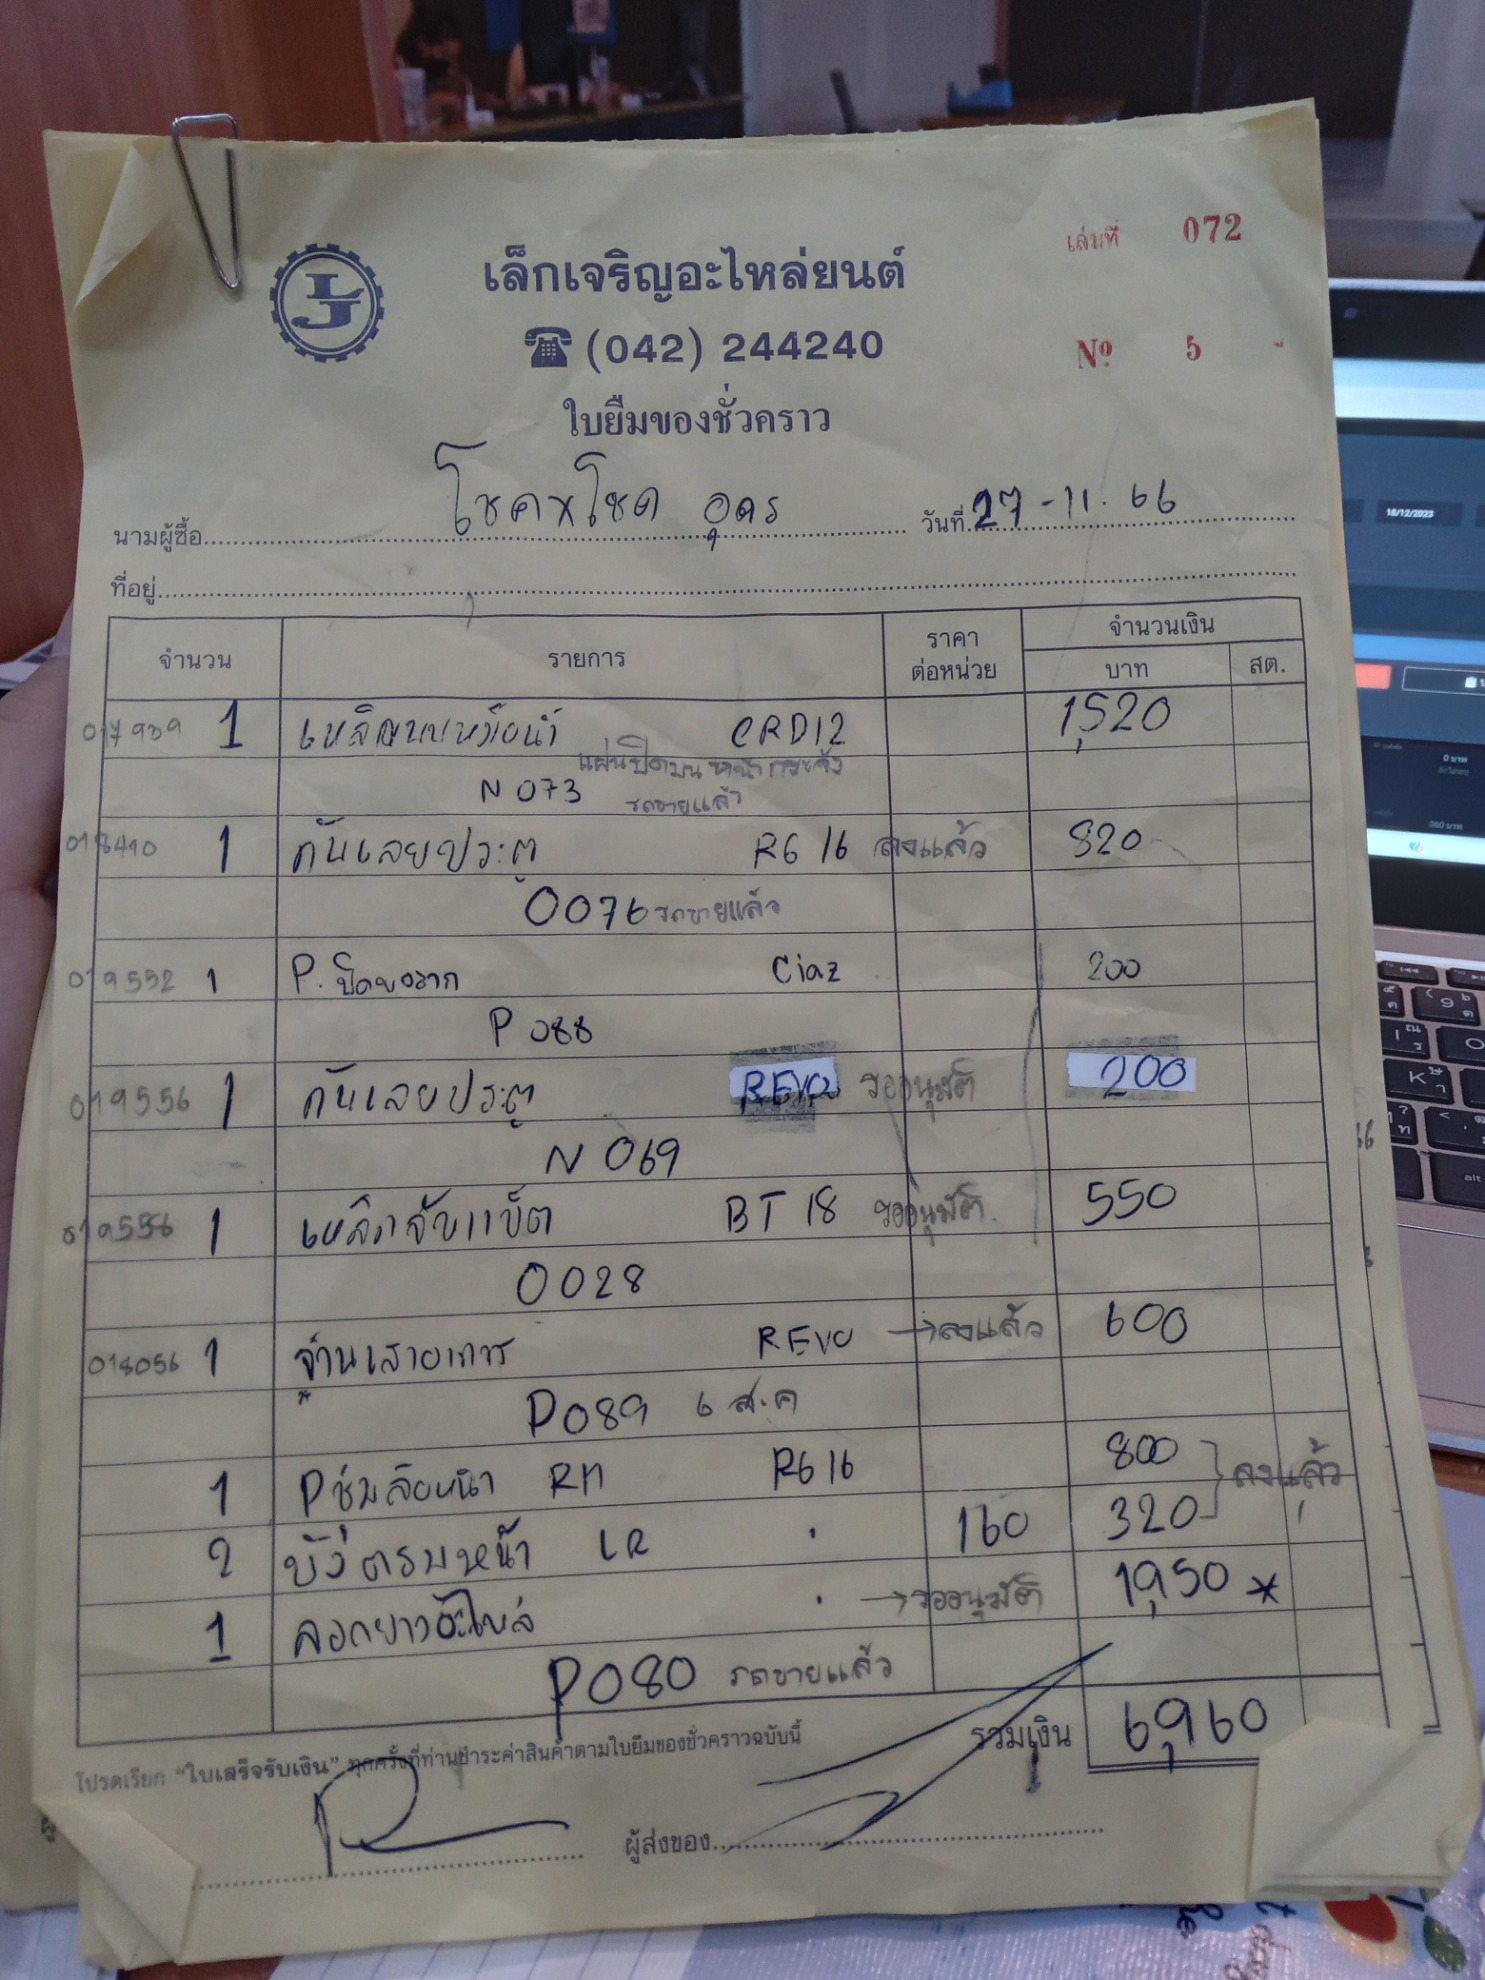 เล่มที่ 072
เล็กเจริญอะไหล่ยนต์
(042) 244240
Nº 5
ใบยืมของชั่วคราว
นามผู้ซื้อ โชคxโชค อุดร วันที่ 27-11.66
ที่อยู่
จำนวน รายการ ราคาต่อหน่วย จำนวนเงิน
บาท สต.
017939 1 CRD12 1,520
แผ่นปิดบนหน้ากระจัง
N 073 รถขายแล้ว
018410 1 กันเลยประตู RG 16 ลงแล้ว 820
0076 รถขายแล้ว
019552 1 Ciaz 200
P 088
019556 1 กันเลยประตู REVO รออนุมัติ 200
N 069
019556 1 BT 18 รออนุมัติ. 550
0028
018056 1 REVO → ลงแล้ว 600
P089 6 ส.ค
1 RH RG 16 800 ลงแล้ว
2 LR 160 320
1 → รออนุมัติ 1,950 *
P080 รถขายแล้ว
รวมเงิน 6,960
โปรดเรียก "ใบเสร็จรับเงิน" ทุกครั้งที่ท่านชำระค่าสินค้าตามใบยืมของชั่วคราวฉบับนี้
ผู้ส่งของ
18/12/2023
0 บาท
360 บาท
K
alt